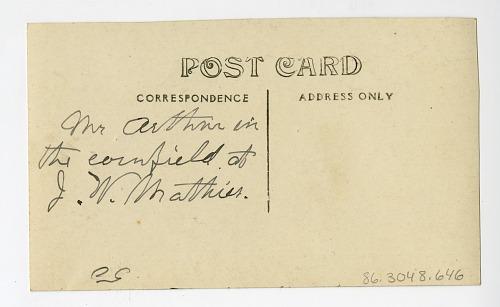 POST CARD
CORRESPONDENCE
ADDRESS ONLY
Mr Arthur in
the cornfield at
J. W. Mathies.
86.3048.646